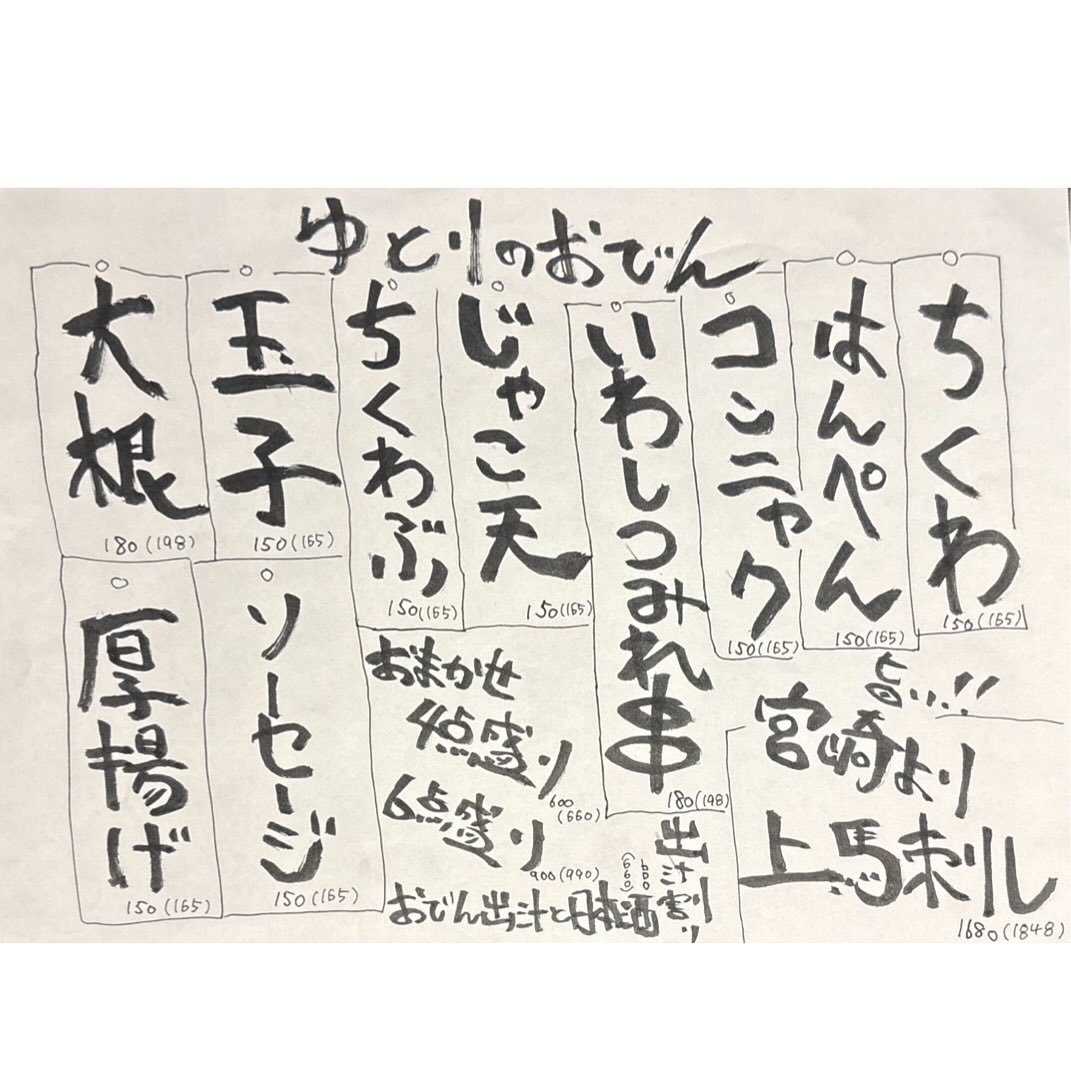 ゆとりのおでん
ちくわ
150(165)
はんぺん
150(165)
コンニャク
150(165)
いわしつみれ串
180(198)
じゃこ天
150(165)
ちくわぶ
150(165)
玉子
150(165)
大根
180(198)
旨い!!
宮崎より
上馬刺し
1680(1848)
おまかせ
4点盛り
600
(660)
6点盛り
900(990)
出汁割り
600
(660)
おでん出汁と日本酒
ソーセージ
150(165)
厚揚げ
150(165)